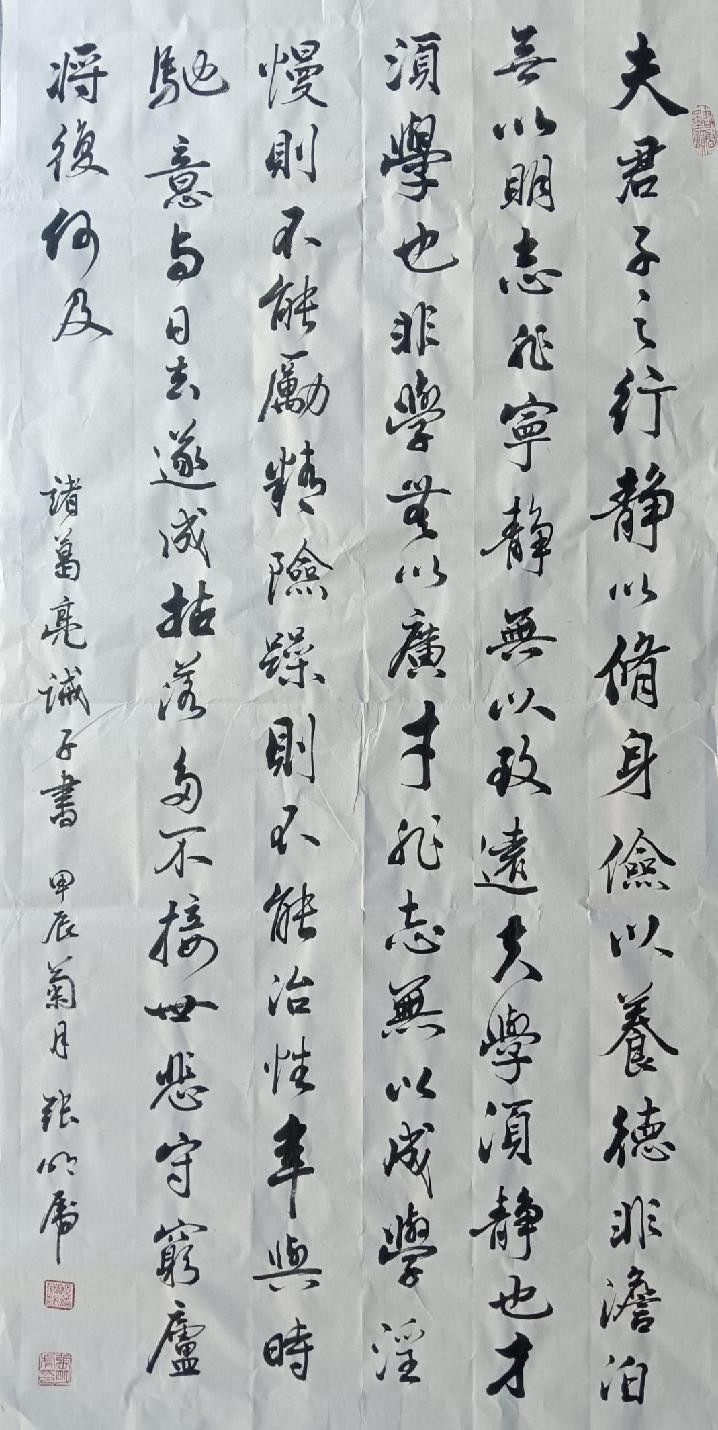 夫君子之行静以脩身儉以養德非澹泊
無以明志非寧静無以致遠夫學須静也才
須學也非學無以廣才非志無以成學淫
慢則不能勵精險躁則不能治性年與時
馳意与日去遂成枯落多不接世悲守窮廬
将復何及
諸葛亮誡子書 甲辰菊月 張